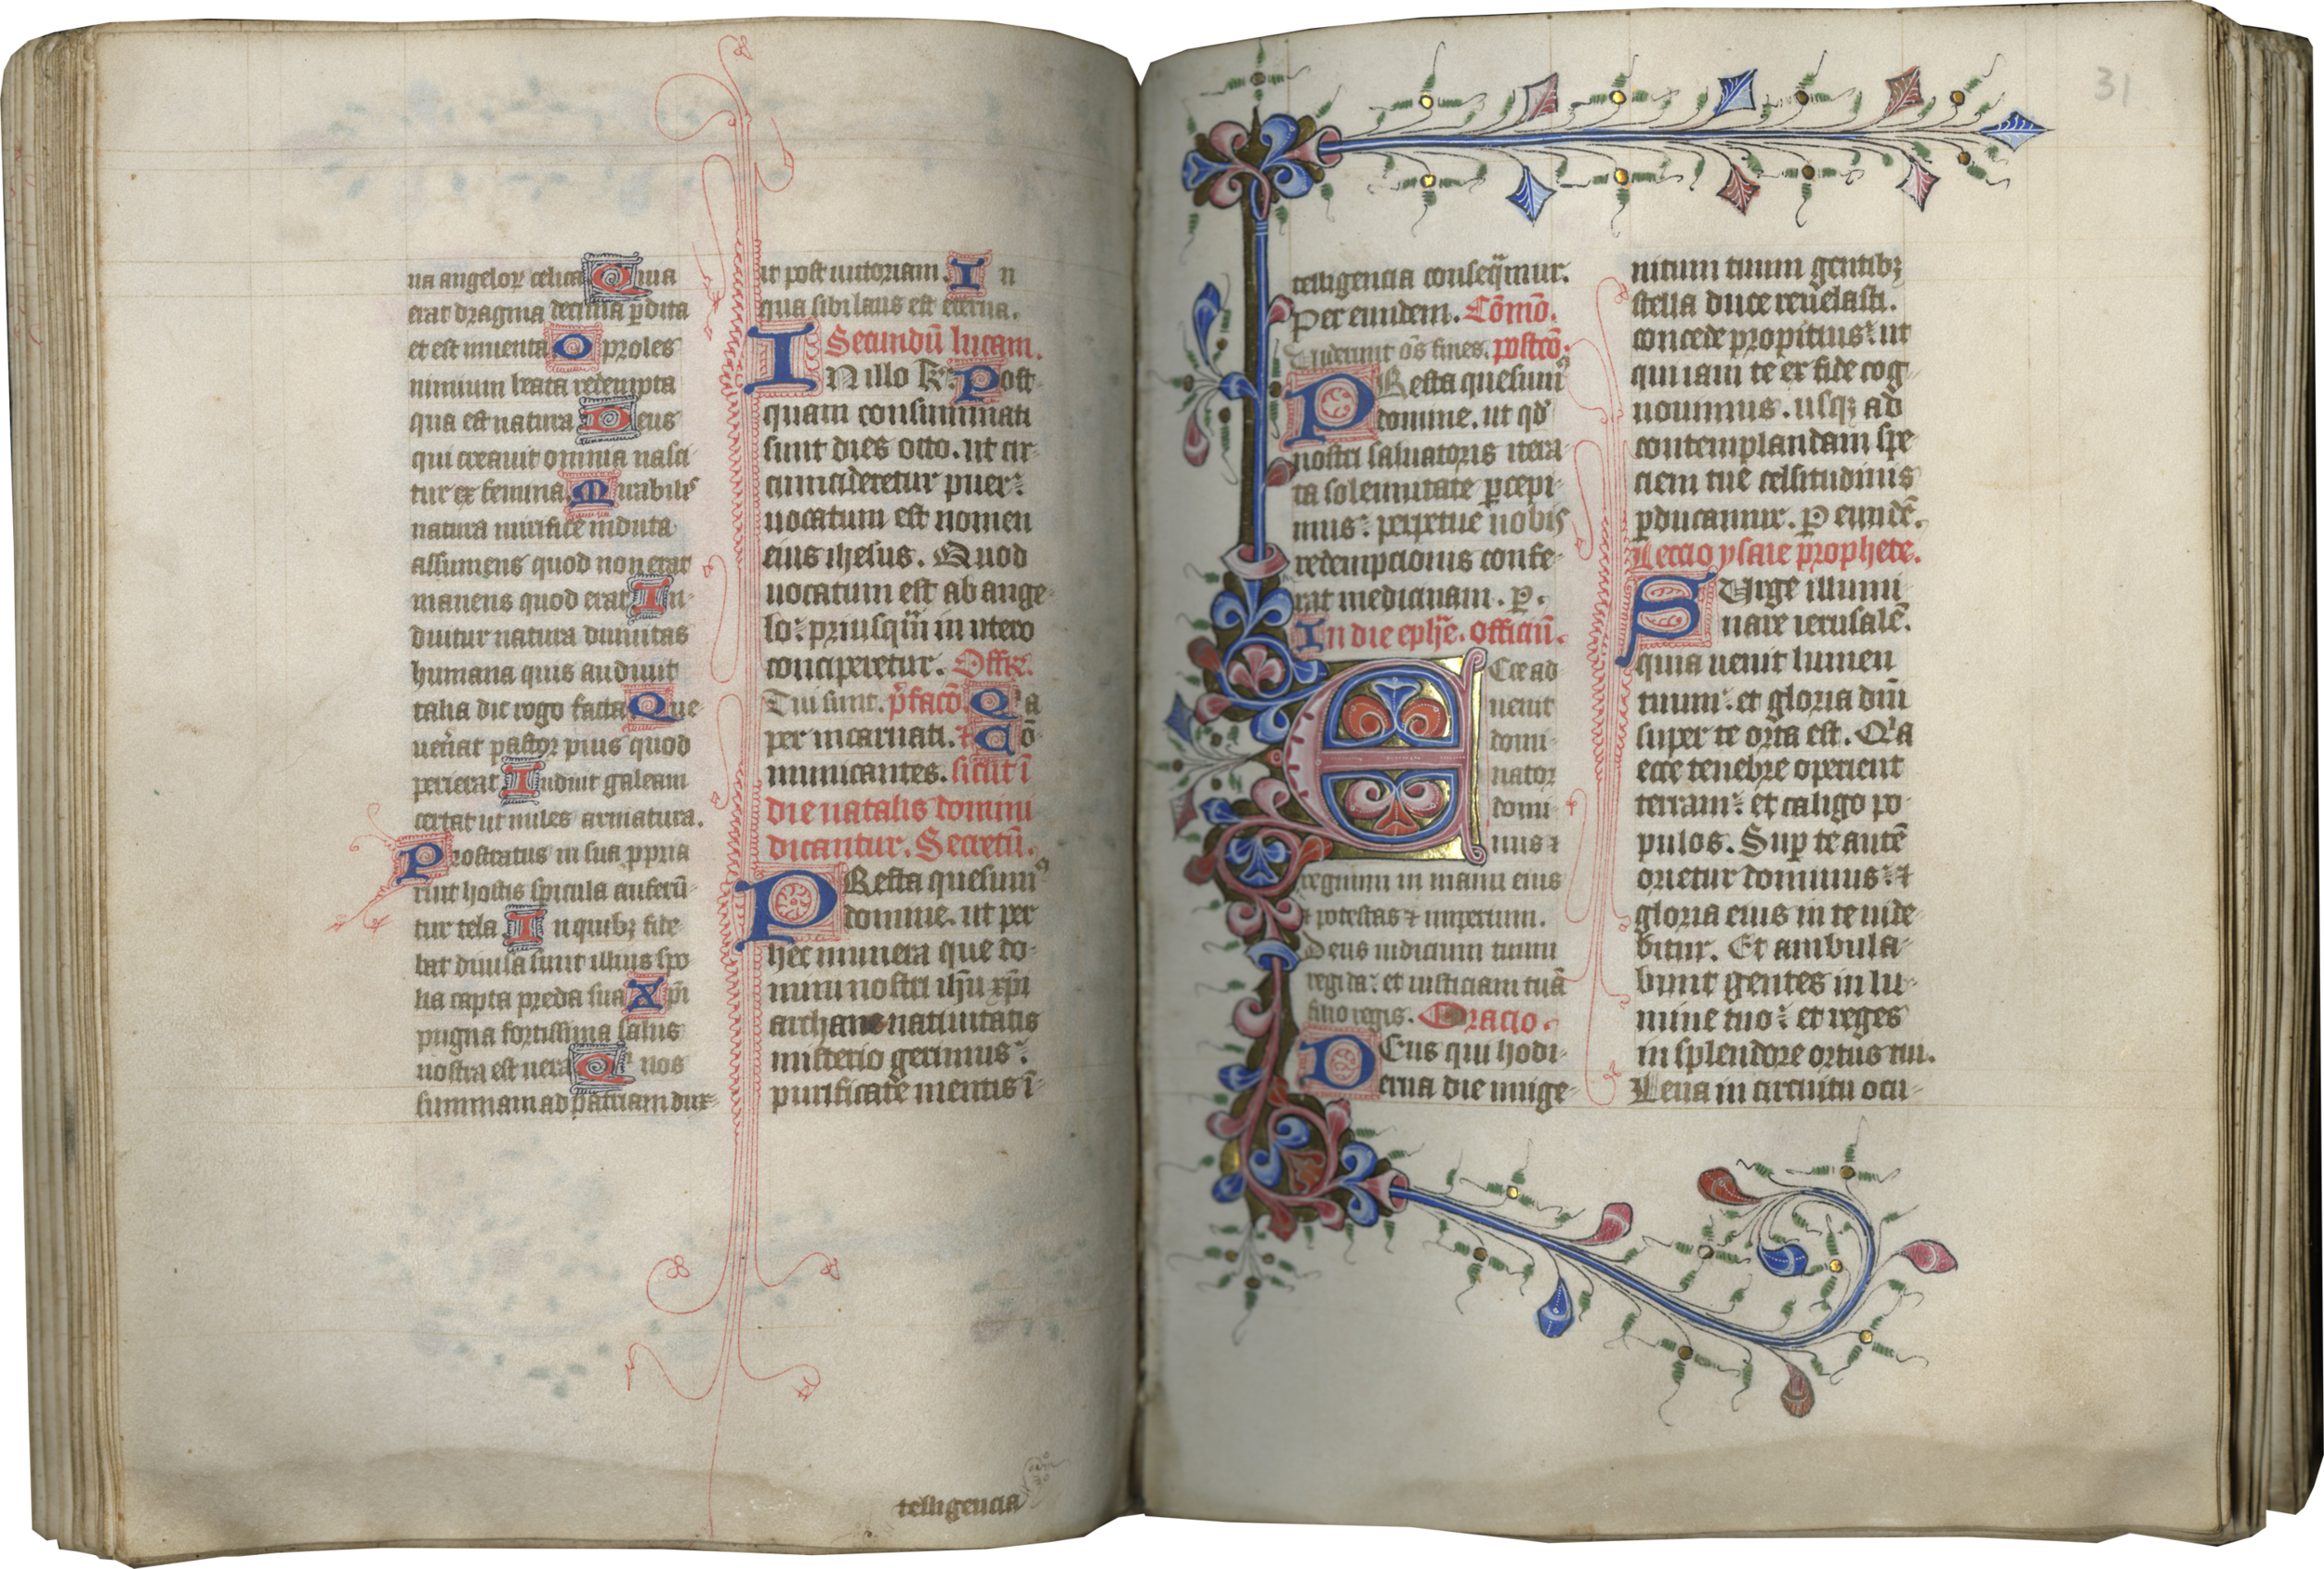 na angeloꝝ celica Qua
erat dragma decima ꝑdita
et est inuenta O proles
nimium beata redempta
qua est natura Deus
qui creauit omnia nasci
tur ex femina Mirabilis
natura mirifice induta
assumens quod non erat
manens quod erat In
duitur natura diuinitas
humana quis audiuit
talia dic rogo facta Que
uen̄at pastor pius quod
perierat Induit galeam
certat ut miles armatura.
Prostratus in sua ꝓpria
ruit hostis spicula auferū
tur tela In quibꝫ fide
bat diuisa sunt illius spo
lia capta preda sua Xp̄i
pugna fortissima salus
nostra est uera Qui nos
summam ad patriam dux
it post uictoriam. In
qua sibi laus est eterna.
Secundū lucam.
IN illo t̄. Post
quam consummati
sunt dies octo. ut cir
cumcideretur puer:
uocatum est nomen
eius ihesus. Quod
uocatum est ab ange
lo: priusqua̅ in utero
conciperetur. Offr̄.
Tui sunt. p̄facō. Qia
per incarnati. Cō
municantes. sicut ī
die natalis domini
dicantur. Secretū.
PResta quesumꝰ
domine. ut per
hec munera que do
mini nostri ih̄u xp̄i
archane natiuitatis
misterio gerimus:
purificate mentis ī
telligencia
31
telligencia conseq̄mur.
Per eundem. Cōmō.
Uiderunt oēs fines. postcō.
PResta quesumꝰ
domine. ut qd̄
nostri saluatoris itera
ta solennitate ꝑcepi
mus: perpetue nobis
redempcionis confe
rat medicinam. ꝑ.
In die eph̄ie. officiū.
ECce ad
uenit
domi
nator
domi
nus ⁊
regnum in manu eius
⁊ potestas ⁊ imperium.
Deus iudicium tuum
regi da: et iusticiam tuā
filio regis. Oracio.
DEus qui hodi
erna die unige
nitum tuum gentibꝫ
stella duce reuelasti.
concede propitius: ut
qui iam te ex fide cog
nouimus. usqꝫ ad
contemplandam spe
ciem tue celsitudinis
ꝑducamur. P eundē.
Leccio ysaie prophete.
SUrge illumi
nare ierusalē.
quia uenit lumen
tuum: et gloria dn̄i
super te orta est. Qia
ecce tenebre operient
terram: et caligo po
pulos. Suꝑ te autē
orietur dominus: ⁊
gloria eius in te uide
bitur. Et ambula
bunt gentes in lu
mine tuo: et reges
in splendore ortus tui.
Leua in circuitu ocu